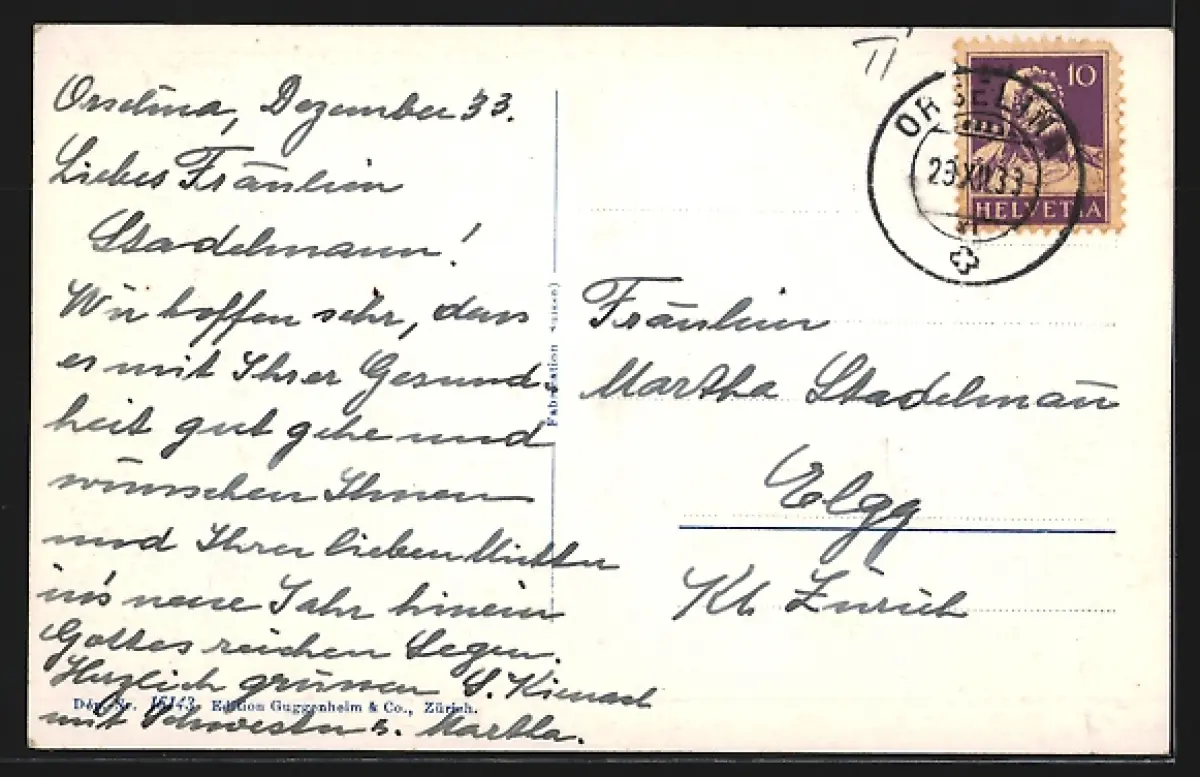 Orselina, Dezember 33.
Liebes Fräulein
Stadelmann!
Wir hoffen sehr, dass
es mit Ihrer Gesund-
heit gut gehe und
wünschen Ihnen
und Ihrer lieben Mutter
in's neue Jahr hinein
Gottes reichen Segen.
Herzlich grüssen S. Kienast
mit Schwester Martha.
Dép. Nr. 16143. Edition Guggenheim & Co., Zürich.
(Fabrication Suisse)
II
10
HELVETIA
ORSELINA
29.XII.33
Fräulein
Martha Stadelmañ
Elgg
Kt. Zürich